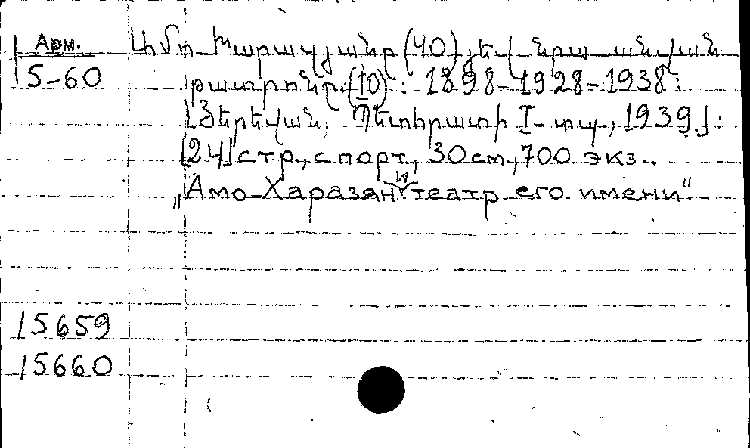 Арм.
5-60
Ամո Խարազյանը (40) և նրա անվան
թատրոնը (10): 1898-1928-1938:
[Երևան, Պետհրատի I տպ., 1939]:
[24] стр., с порт., 30 см., 700 экз.
„Амо Харазян и театр его имени"
15659
15660